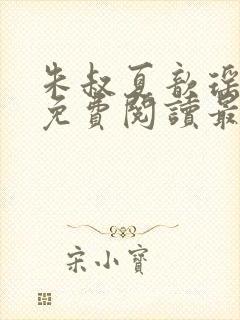 朱叔夏歆瑶
免費閱讀最
宋小寶